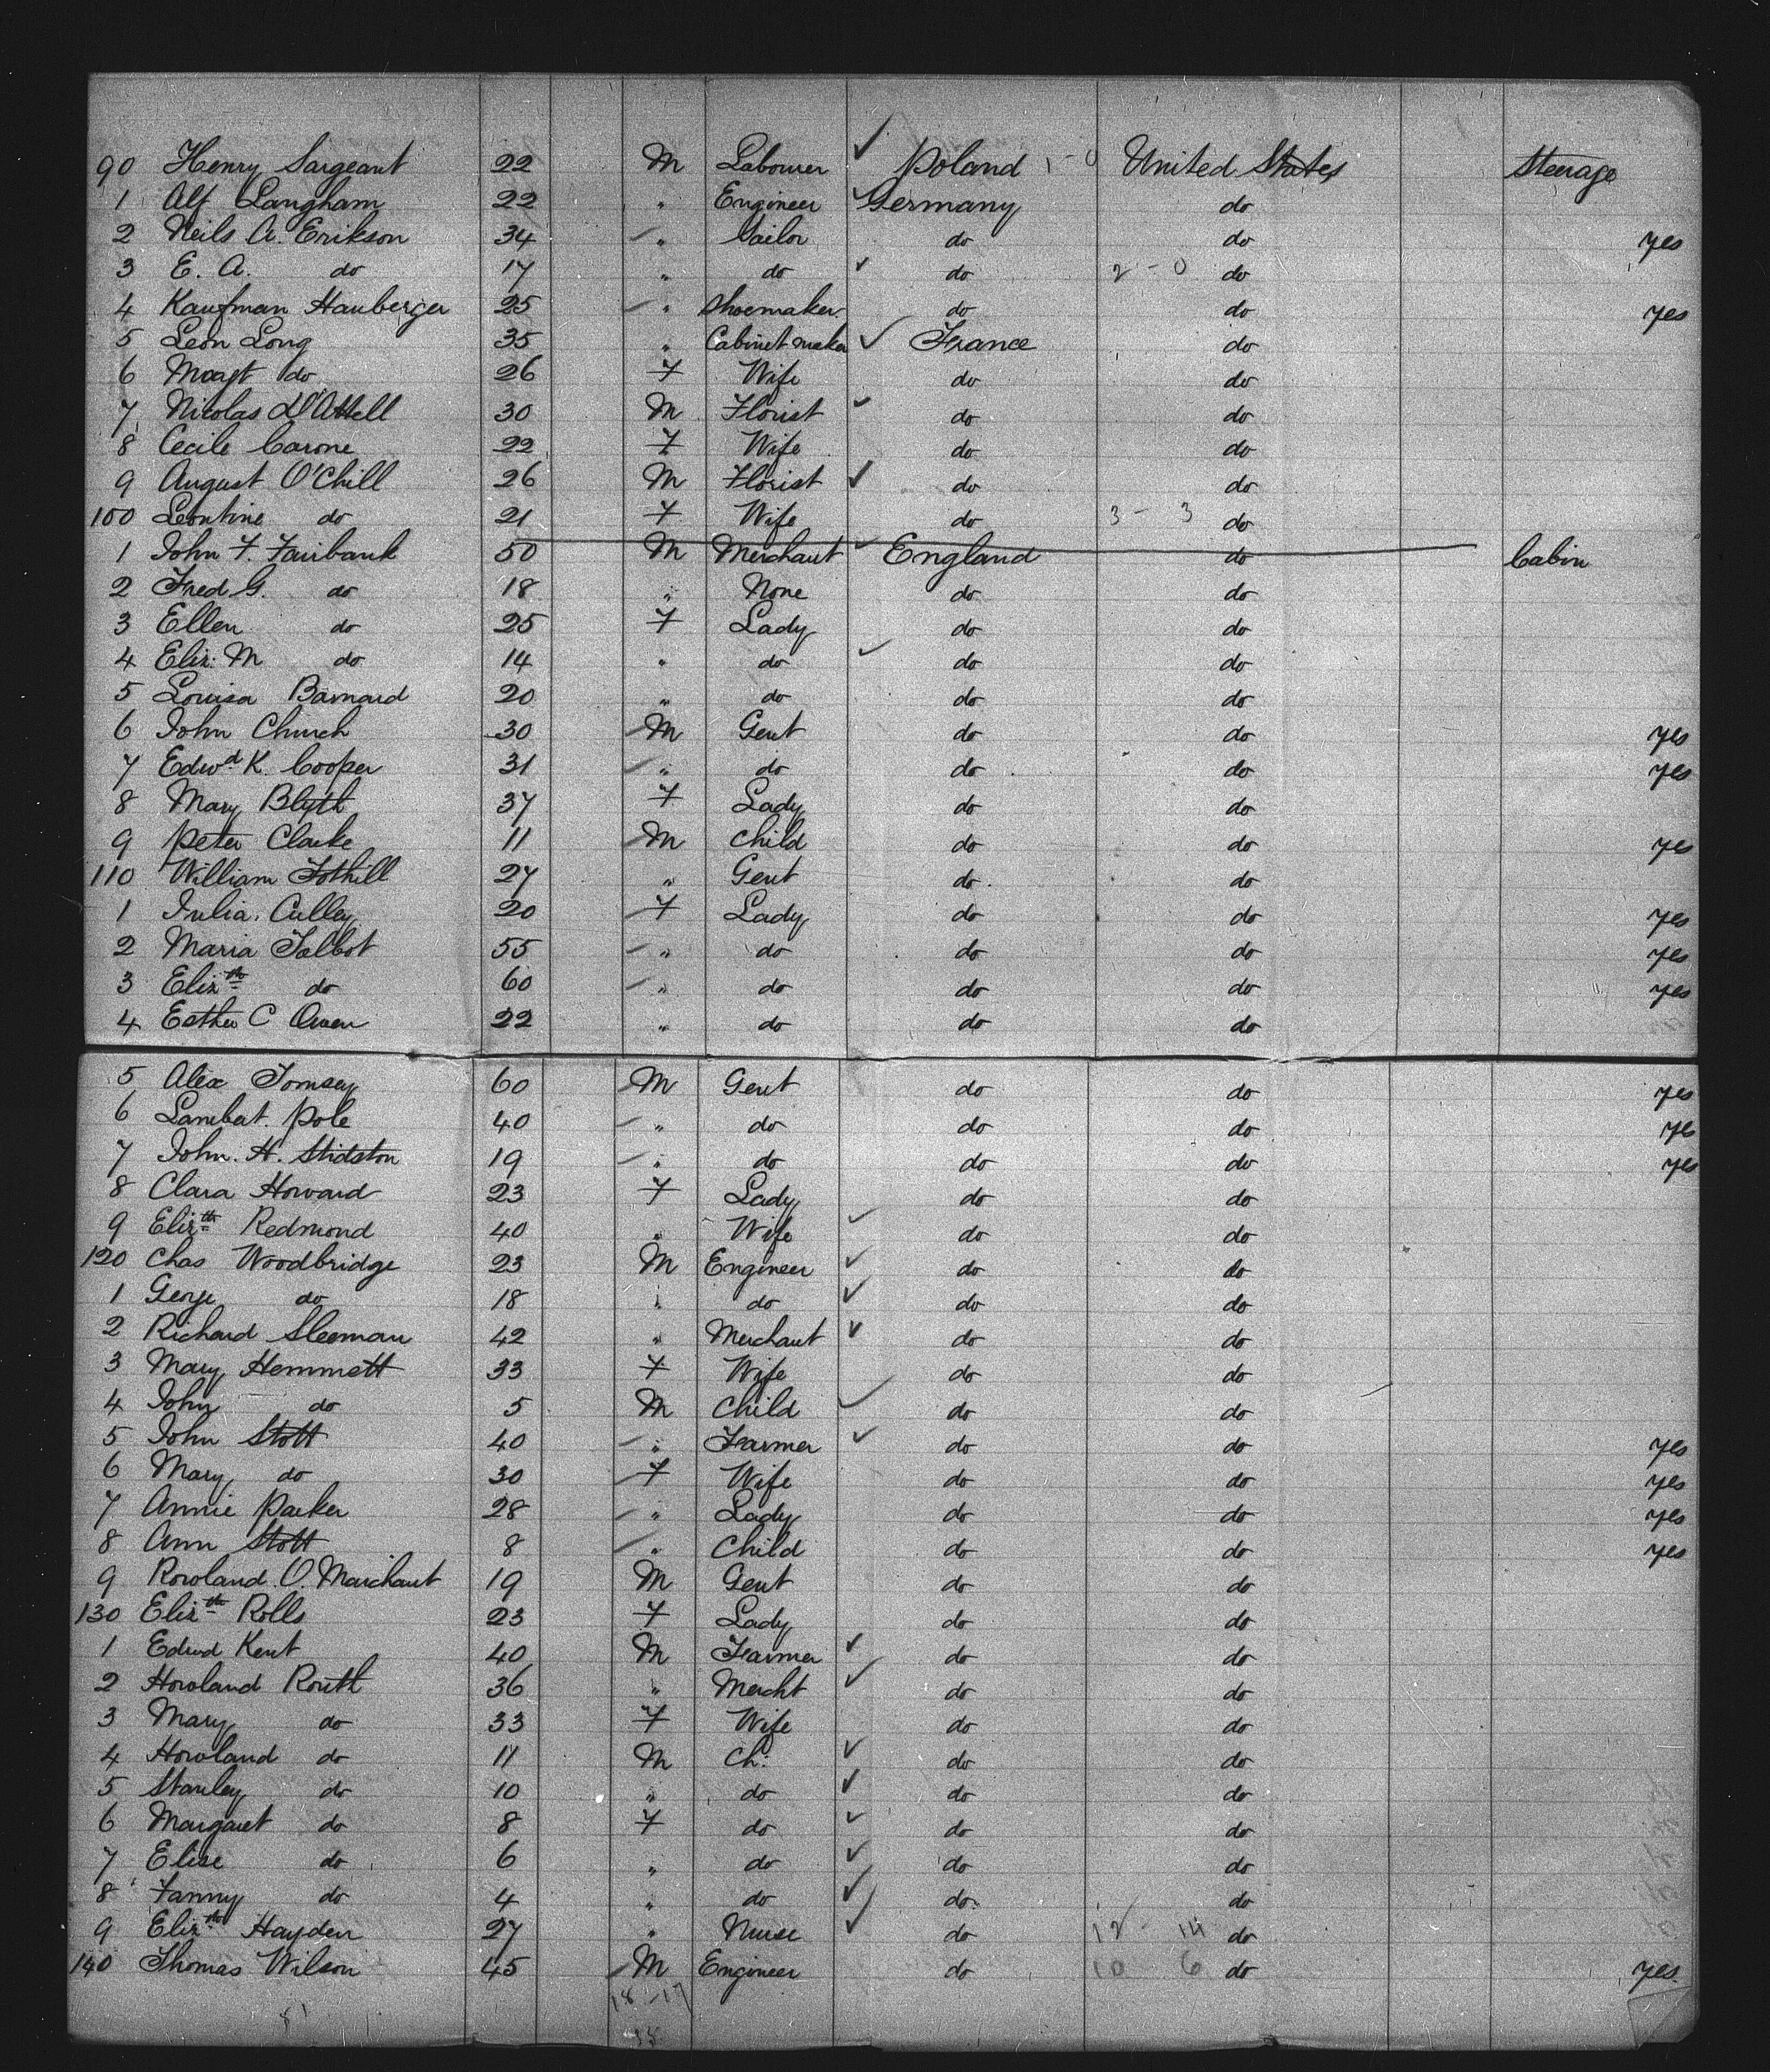 90 Henry Sargeant 22 M Labourer Poland 1-0 United States Steerage
1 Alf Langham 22 " Engineer Germany do
2 Neils A. Erikson 34 " Sailor do do yes
3 E. A. do 17 " do do 2-0 do
4 Kaufman Hauberger 25 " Shoemaker do do yes
5 Leon Long 35 " Cabinet maker France do
6 Magt do 26 F Wife do do
7 Nicolas D'Attell 30 M Florist do do
8 Cecile Carone 22 F Wife do do
9 August O'Chill 26 M Florist do do
100 Leontine do 21 F Wife do 3-3 do
1 John F. Fairbank 50 M Merchant England do Cabin
2 Fred G. do 18 " None do do
3 Ellen do 25 F Lady do do
4 Eliz: M do 14 " do do do
5 Louisa Barnard 20 " do do do
6 John Church 30 M Gent do do yes
7 Edwd K. Cooper 31 " do do do yes
8 Mary Blyth 37 F Lady do do
9 Peter Clarke 11 M Child do do yes
110 William Tothill 27 " Gent do do
1 Julia Culley 20 F Lady do do yes
2 Maria Talbot 55 " do do do yes
3 Elizth do 60 " do do do yes
4 Esther C Owen 22 " do do do
5 Alex Tomsey 60 M Gent do do yes
6 Lambert Pole 40 " do do do yes
7 John. H. Stidston 19 " do do do yes
8 Clara Howard 23 F Lady do do
9 Elizth Redmond 40 " Wife do do
120 Chas Woodbridge 23 M Engineer do do
1 George do 18 " do do do
2 Richard Sleeman 42 " Merchant do do
3 Mary Hemmett 33 F Wife do do
4 John do 5 M Child do do
5 John Stott 40 " Farmer do do yes
6 Mary do 30 F Wife do do yes
7 Annie Parker 28 " Lady do do yes
8 Ann Stott 8 " Child do do yes
9 Rowland O. Marchant 19 M Gent do do
130 Elizth Rolls 23 F Lady do do
1 Edwd Kent 40 M Farmer do do
2 Howland Routh 36 " Mercht do do
3 Mary do 33 F Wife do do
4 Howland do 11 M Ch: do do
5 Stanley do 10 " do do do
6 Margaret do 8 F do do do
7 Elise do 6 " do do do
8 Fanny do 4 " do do do
9 Elizth Hayden 27 " Nurse do 12-14 do
140 Thomas Wilson 45 M Engineer do 10 6 do yes.
18-17